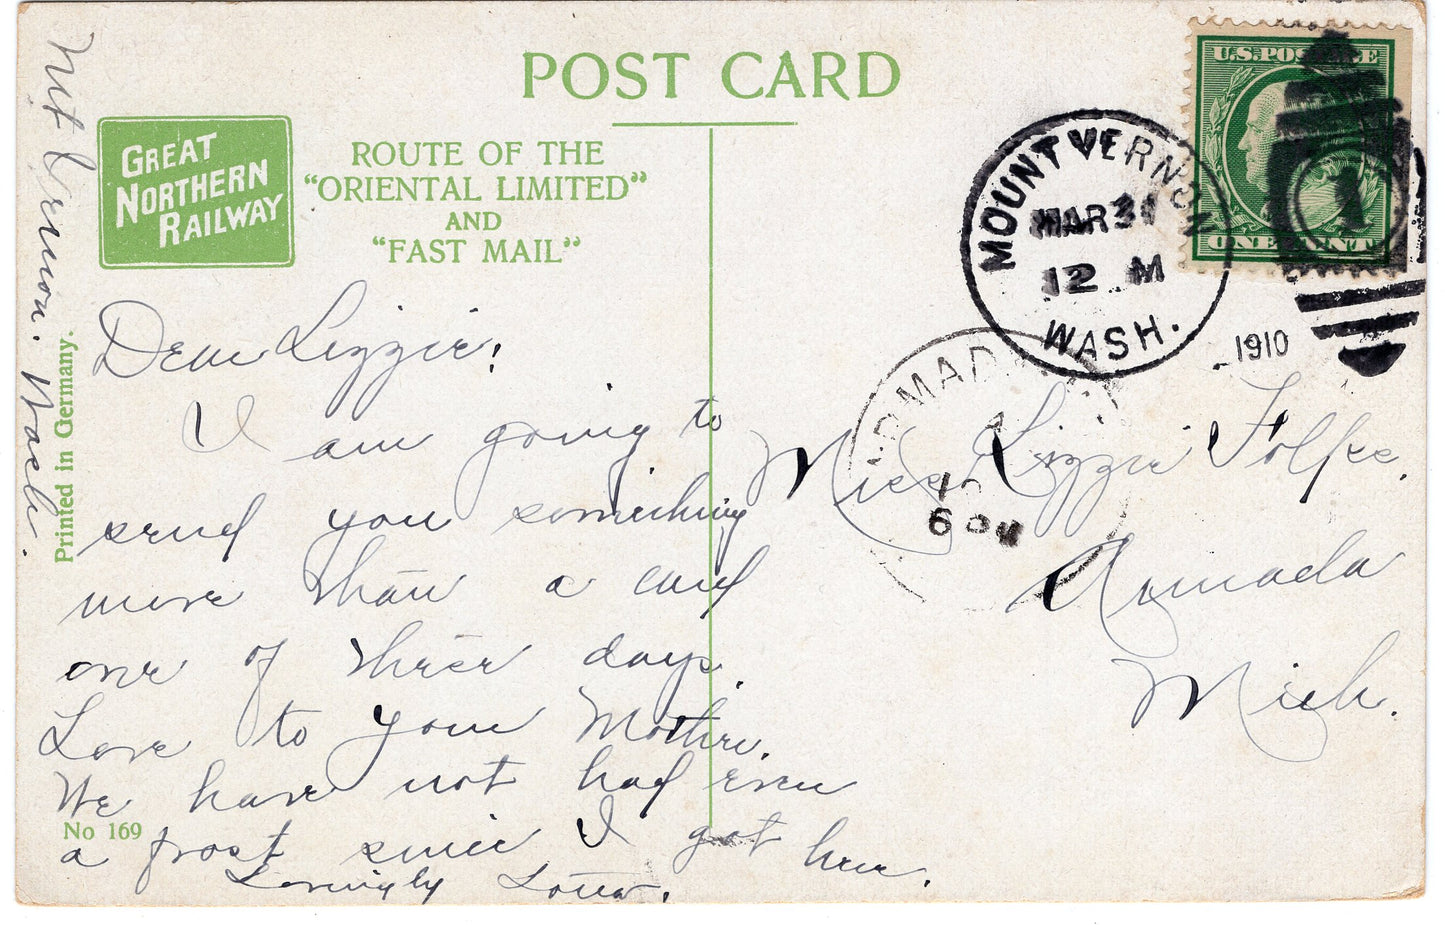 POST CARD
GREAT
NORTHERN
RAILWAY
ROUTE OF THE
"ORIENTAL LIMITED"
AND
"FAST MAIL"
Mt Vernon. Wash.
Printed in Germany.
Dear Lizzie;
I am going to
send you something
more than a card
one of these days.
Love to your Mother.
We have not had even
a frost since I got here.
Lovingly
No 169
U.S. POSTAGE
ONE CENT
MOUNT VERNON
MAR 31
12 M
WASH.
1910
1
Miss Lizzie
Armada
Mich.